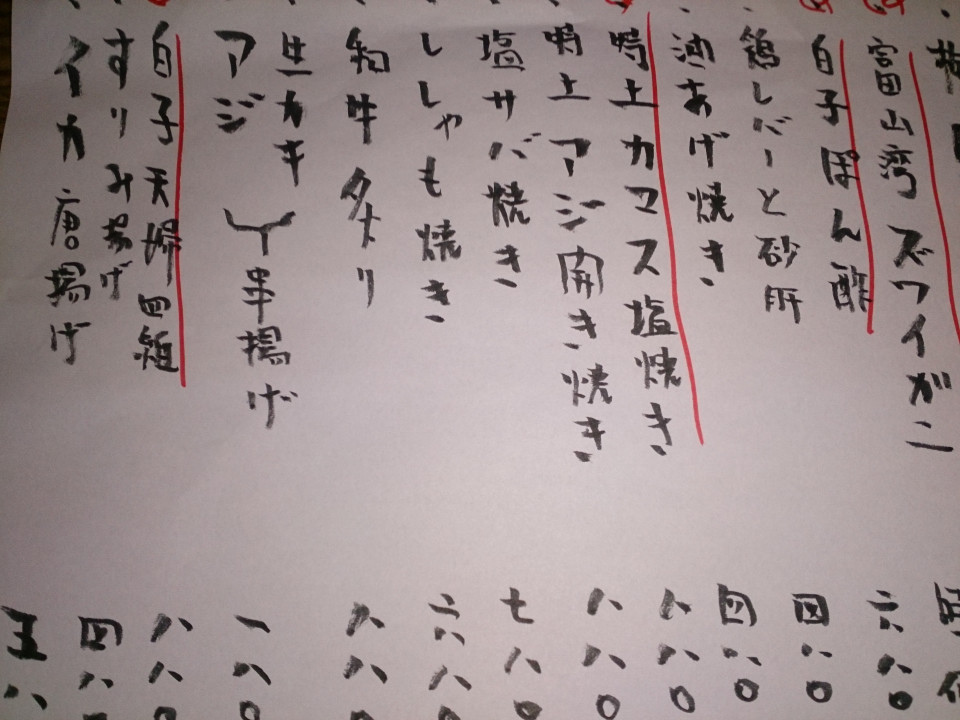 富山湾 ズワイガニ
白子ぽん酢 六八〇
鶏レバーと砂肝 四八〇
油あげ焼き 四八〇
特上カマス塩焼き 八八〇
特上アジ開き焼き 八八〇
塩サバ焼き 七八〇
ししゃも焼き 六八〇
和牛 八八〇
生カキ
アジ
串揚げ 一八〇
白子天婦羅 八八〇
すりみ揚げ 四八
イカ唐揚げ 五八